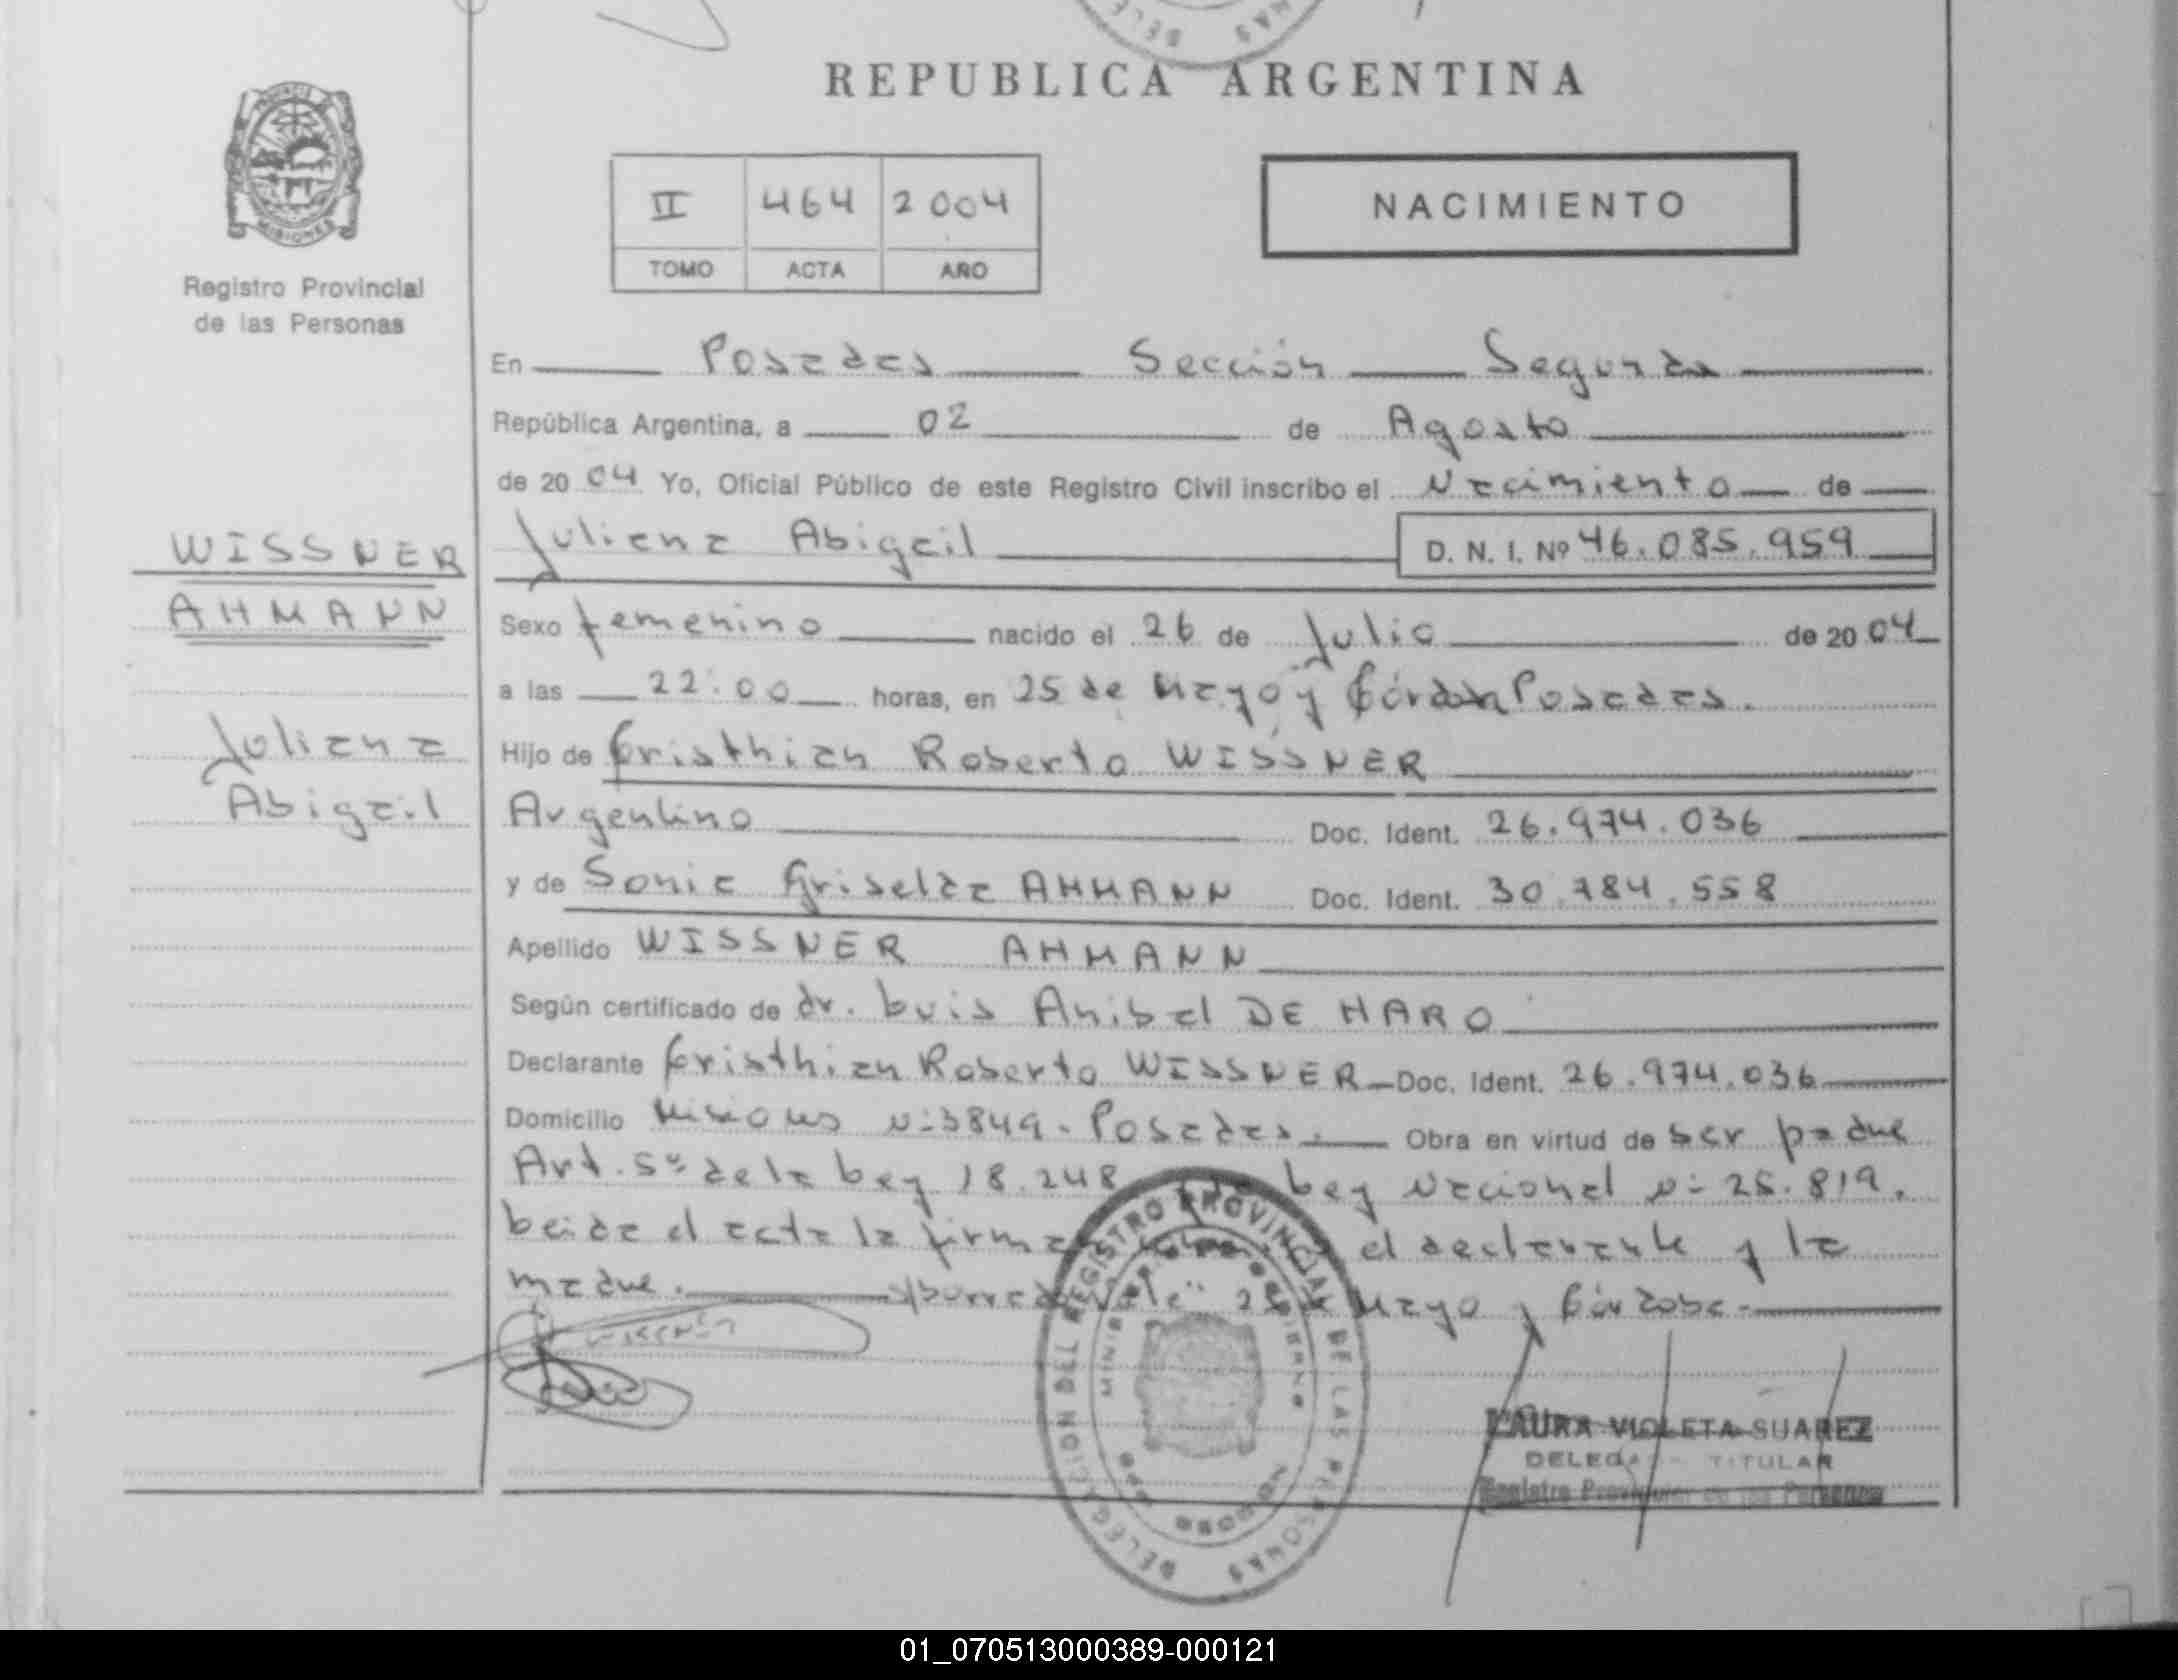 REPUBLICA ARGENTINA
PROVINCIA DE
MISIONES
Registro Provincial
de las Personas
II 464 2004
TOMO ACTA AÑO
NACIMIENTO
En Posadas Sección Segunda
República Argentina, a 02 de Agosto
de 2004 Yo, Oficial Público de este Registro Civil inscribo el Nacimiento de
WISSNER
AHMANN
Juliana
Abigail
Juliana Abigail D. N. I. Nº 46.085.959
Sexo femenino nacido el 26 de Julio de 2004
a las 22:00 horas, en 25 de Mayo y Córdoba Posadas.
Hijo de Cristhian Roberto WISSNER
Argentino Doc. Ident. 26.974.036
y de Sonia Griselda AHMANN Doc. Ident. 30.784.558
Apellido WISSNER AHMANN
Según certificado de dr. Luis Anibal DE HARO
Declarante Cristhian Roberto WISSNER Doc. Ident. 26.974.036
Domicilio Misiones Nº 3849 - Posadas. Obra en virtud de ser padre
Art. 5º de la Ley 18.248 Ley Nacional Nº 25.819.
Leida el acta la firma el declarante y la
madre. s/borrado Vale: 25 de Mayo y Córdoba.-
DELEGACION DEL REGISTRO PROVINCIAL DE LAS PERSONAS
LAURA VIOLETA SUAREZ
DELEGADA TITULAR
Registro Provincial de las Personas
01_070513000389-000121